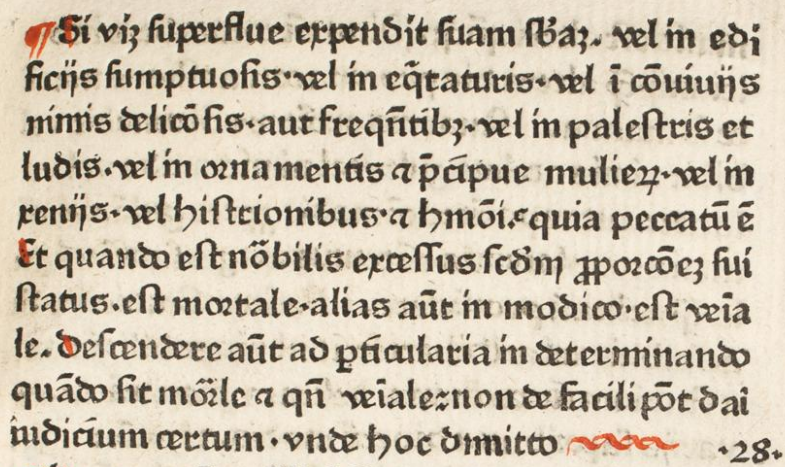 ¶ Si viꝫ superflue expendit suam sb̄aꝫ. vel in edi
ficijs sumptuosis·vel in eq̄taturis·vel ī cōuiuijs
nimis delicōsis·aut freqn̄tibꝫ·vel in palestris et
ludis·vel in ornamentis ⁊ p̄cipue mulieꝝ·vel in
xenijs·vel histrionibus·⁊ hmōi·quia peccatū ē
Et quando est nōbilis excessus scd̄m ꝓporcōeꝫ sui
status·est mortale·alias aūt in modico·est veīa
le. Descendere aūt ad ꝑticularia in determinando
quādo sit mōr̄le ⁊ qn̄ veīale:non de facili pōt dai
iudicium certum·vnde hoc dimitto ·28·